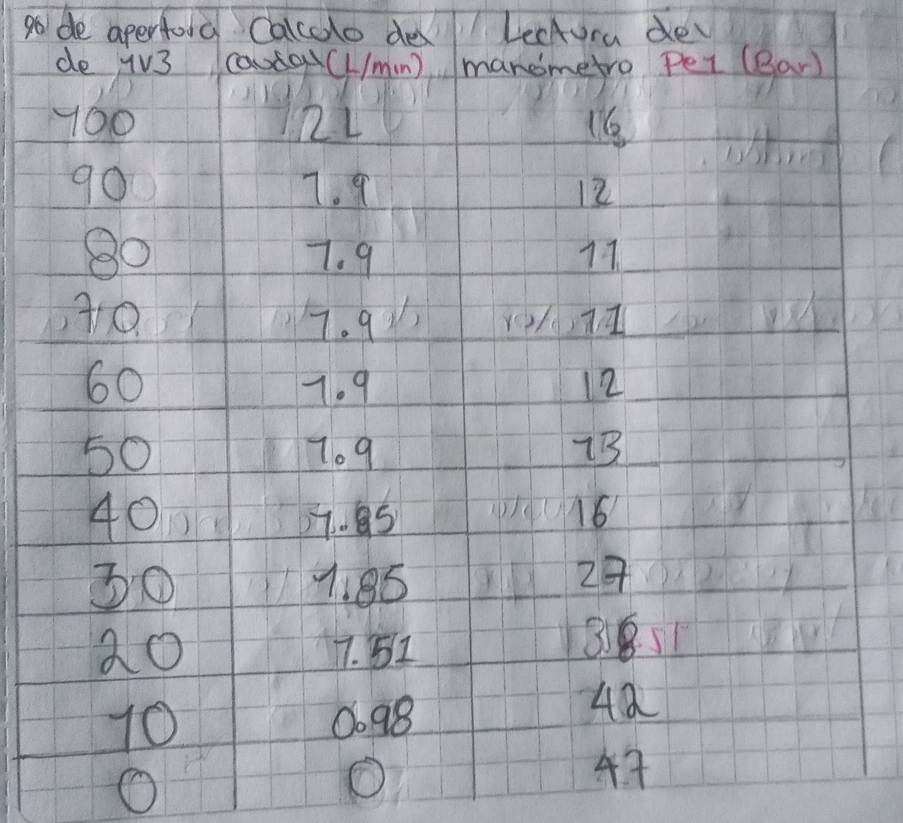 % de apertura Calculo del Lectura del
de 1V3 caudal (L/min) manómetro Pe1 (Bar)
100 2L 16
90 1.9 12
80 1.9 11
70 1.9 11
60 1.9 12
50 1.9 13
40 1.85 16
30 1.85 27
20 1.51 38 SI
10 0.98 42
0 0 47